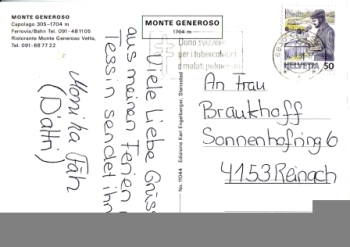 MONTE GENEROSO
Capolago 305-1704 m
Ferrovia/Bahn Tel. 091-481105
Ristorante Monte Generoso Vetta,
Tel. 091-687722
MONTE GENEROSO
1704 m
Dona svizzera
per i tubercolosi
HELVETIA 50
Viele Liebe Grüsse
aus meinen Ferien im
Tessin sendet Ihnen
Monika Fäh
(Dättli)
No. 11044 Edizione Karl Engelberger, Stansstad
An Frau
Braukhoff
Sonnenhofring 6
4153 Reinach